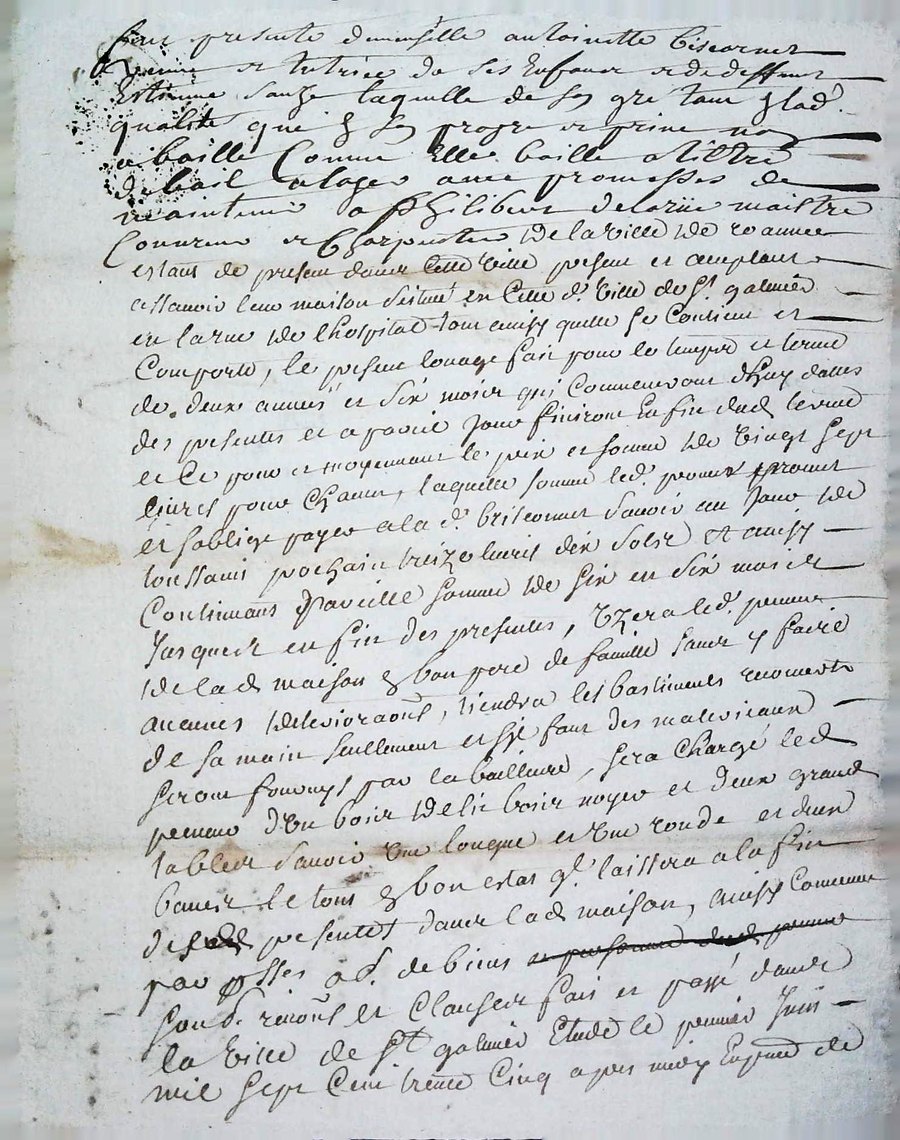 fut presente demoiselle antoinette biscornet
veuve et tutrice de ses Enfans et de deffunt
Estienne laquelle de son gré tant à lad.
qualité que à son propre et privé nom
a baillé Comme Elle baille a tiltre
de bail a loyer avec promesses de
maintenir a philibert delarüe maistre
Couvreur et Charpentier de la ville de roanne
estant de present dans Cette ville present et acceptant
assavoir leur maison scituée en Cette d. ville de St galmier
en la rue de lhospital tout ainsy quelle se Contient et
Comporte, le present louage fait pour le temps et terme
de deux années et six mois qui Commencront dhuy datte
des presentes et a pareil jour finiront En fin dud. terme
et Ce pour et moyennant le prix et somme de vingt sept
livres pour Chacun, laquelle somme led. preneur promet
et soblige payer a la d. biscornet savoir au jour de
toussaint prochain treize livres dix sols et ainsy
Continuant pareille somme de six en six mois
jusques en fin des presentes, uzera led. preneur
de lad. maison à bon pere de famille sans y faire
aucunes deterioraons, tiendra les bastiments recouverts
de sa main seullement et sil faut des materiaux
seront fournys par la bailleuse, sera Chargé led.
preneur d'un bois de lit bois noyer et deux grand
tables savoir une longue et une ronde et deux
bancs le tout à bon estat ql laissera a la fin
des presentes dans lad. maison, ainsy Convenu
par osses ad. de biens et personne dud. preneur
soub. renons et clauses fait et passé dans
la ville de St galmier Etude le premier juin
mil sept Cent trente Cinq apres midy En presence de